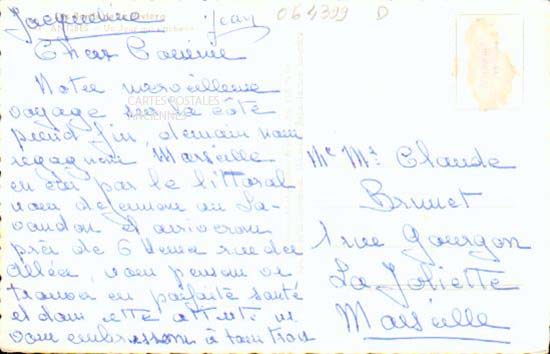 Jacqueline Jean
064399 D
Chers Cousins
Notre merveilleux
voyage sur la côte
prend fin, demain nous
regagnons Marseille
en car par le littoral
nous déjeunons au La-
vandou et arriverons
près de 6 heures rue des
nous pensons vs
trouver en parfaite santé
et dans cette attente vs
vous embrassons à tous trois
CARTES POSTALES
ANCIENNES
Mr Me Claude
Brunet
1 rue Gourgon
La Joliette
Marseille